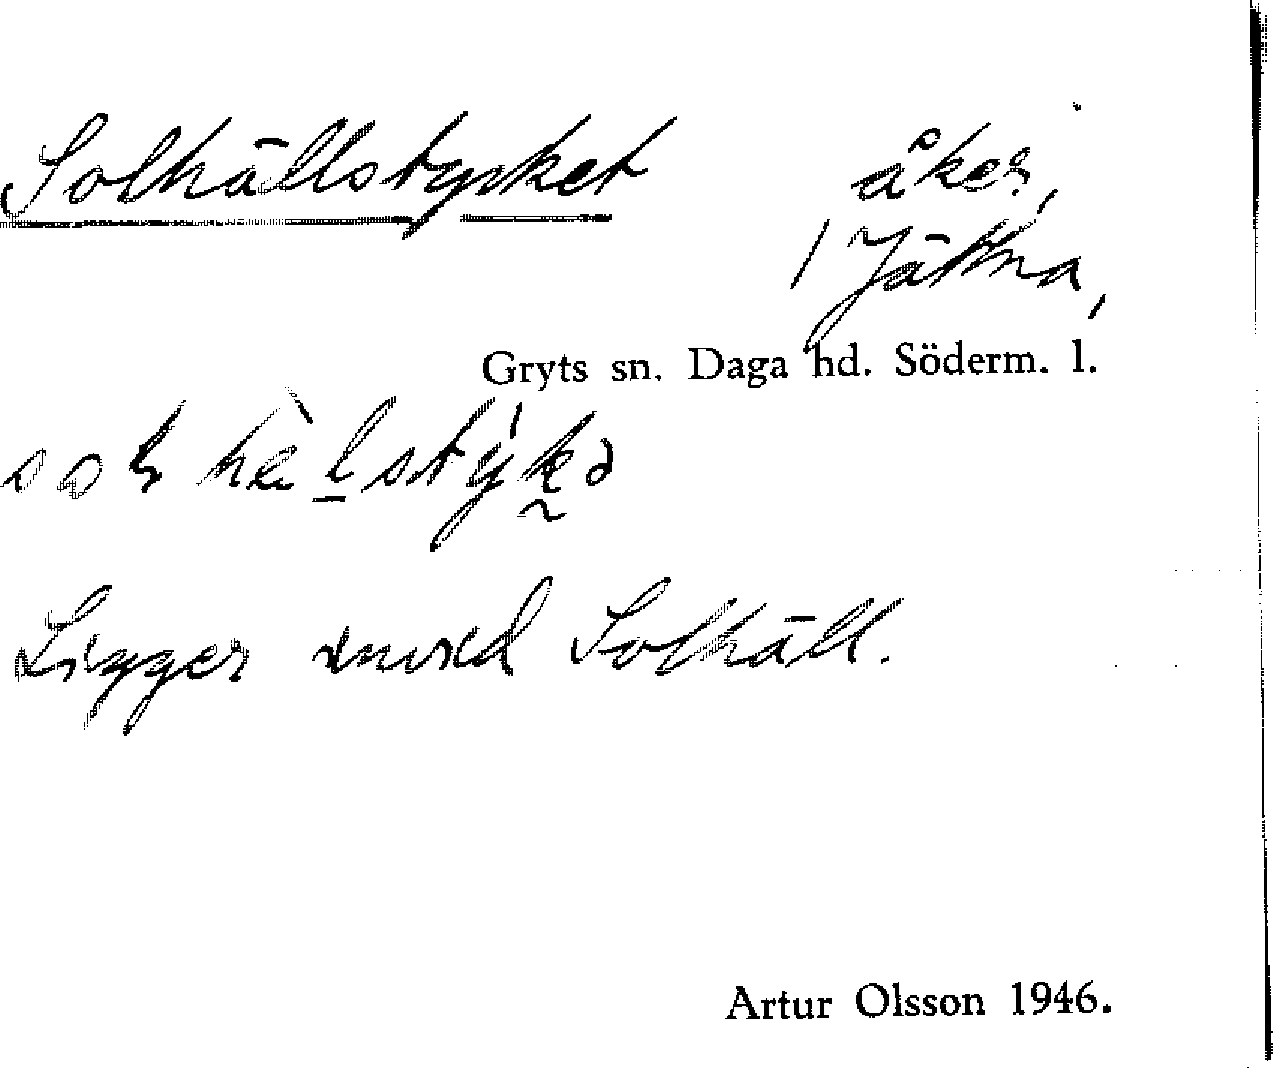 Solhällstycket åker,
/ Jätna,
Gryts sn. Daga hd. Söderm. l.
Ligger invid Solhäll.
Artur Olsson 1946.